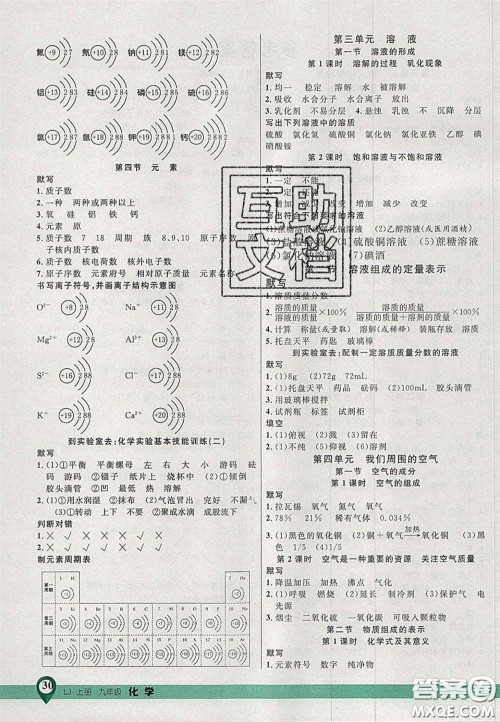 氟 +9 氖 +10 钠 +11 镁 +12
铝 +13 硅 磷 硫
氯 氩 钾 钙
第四节 元 素
默写
1. 质子数
2. 一种 两种或两种以上
3. 氧 硅 铝 铁 钙
4. 元素 原
5. 质子数 7 18 周期 族 8、9、10 原子序数
子核内质子数
6. 质子数 核电荷数 核外电子数
7. 原子序数 元素符号 元素名称
书写离子符号,并画离子结构示意图
O²⁻ +8 2 8 Na⁺ +11 2 8
Mg²⁺ +12 2 8 Al³⁺ +13 2 8
S²⁻ +16 2 8 8 Cl⁻ +17 2 8 8
K⁺ +19 2 8 8 Ca²⁺ +20 2 8 8
到实验室去:化学实验基本技能训练(二)
默写
1. (1)①平衡 平衡螺母 左 右 大 小 游码 砝
码 游码 ②镊子 纸片上 烧杯中 (2)①左
②0 ③凹 最低 热 溶解
2. (1)①用水润湿 ②抹布 (2)气泡冒出 完好 不
(3)①转动 上下 不要 ②聚成水滴 成股流下
判断对错
1. × √ × × ×
2. × √ √ × ×
制元素周期表
第一周期 1 H 2 He
第二周期 3 Li 4 Be 5 B 6 C 7 N 8 O 9 F 10 Ne
第三周期 11 Na 12 Mg 13 Al 14 Si 15 P 16 S 17 Cl 18 Ar
30 LJ 上册 九年级 化学
第三单元 溶 液
第一节 溶液的形成
第1课时 溶解的过程 乳化现象
默写
1. 均一 稳定 溶解 溶解 水
2. 吸收 水合分子 水合离子 放出
3. 乳化剂 不易 易 悬浊 乳浊 不 沉降 分层
写出下列溶液中的溶质
硫酸 氯化氢 氯化钠 氯化亚铁 乙醇 碘
硝酸钠
第2课时 饱和溶液与不饱和溶液
默写
1. 一定 不能
3. 增加 减少 改变 增加 减少 改变
(1)硫酸锌溶液 (2)乙醇溶液(或医用酒精)
(3)盐酸 硫酸铜溶液 (5)蔗糖溶液
(6)氯化钠溶液 (7)碘酒
第二节 溶液组成的定量表示
默写
1. 溶质质量分数
2. 溶质的质量/溶液的质量×100% 溶质的质量/溶质的质量+溶剂的质量×100%
4. 计算 称量(或量取) 溶解(或稀释) 装瓶存放
5. 托盘天平 药匙 玻璃棒
到实验室去:配制一定溶质质量分数的溶液
默写
1. (1)8g (2)72g 72mL
2. (1)托盘天平 药品 砝码 (2)100mL 胶头滴管
3. 玻璃棒
4. 试剂瓶 标签 试剂柜
填空
1. (1)俯视 (2)溅 (3)0
2. (1)不纯 (2)仰视 (3)溶解
第四单元 我们周围的空气
第一节 空气的成分
第1课时 空气的组成
默写
1. 拉瓦锡 氧气 氮气 氧气
2. 78% 21%
3. (1)黑色的氧化铜 (2)铜+氧气 加热→ 氧化铜
(3)黑色 1/5
4. 1/5
第2课时 空气是一种重要的资源 关注空气质量
默写
1. 降温加压 升温 热 沸点 气
2. (1)呼吸 燃烧 (2)导热 (3)保护气 电
光源
3. 二氧化硫 二氧化氮 可吸入颗粒物
第二节 物质组成的表示
第1课时 化学式及其意义
默写
1. 元素符号 数字
互助文档
答案圈
MXQE.COM